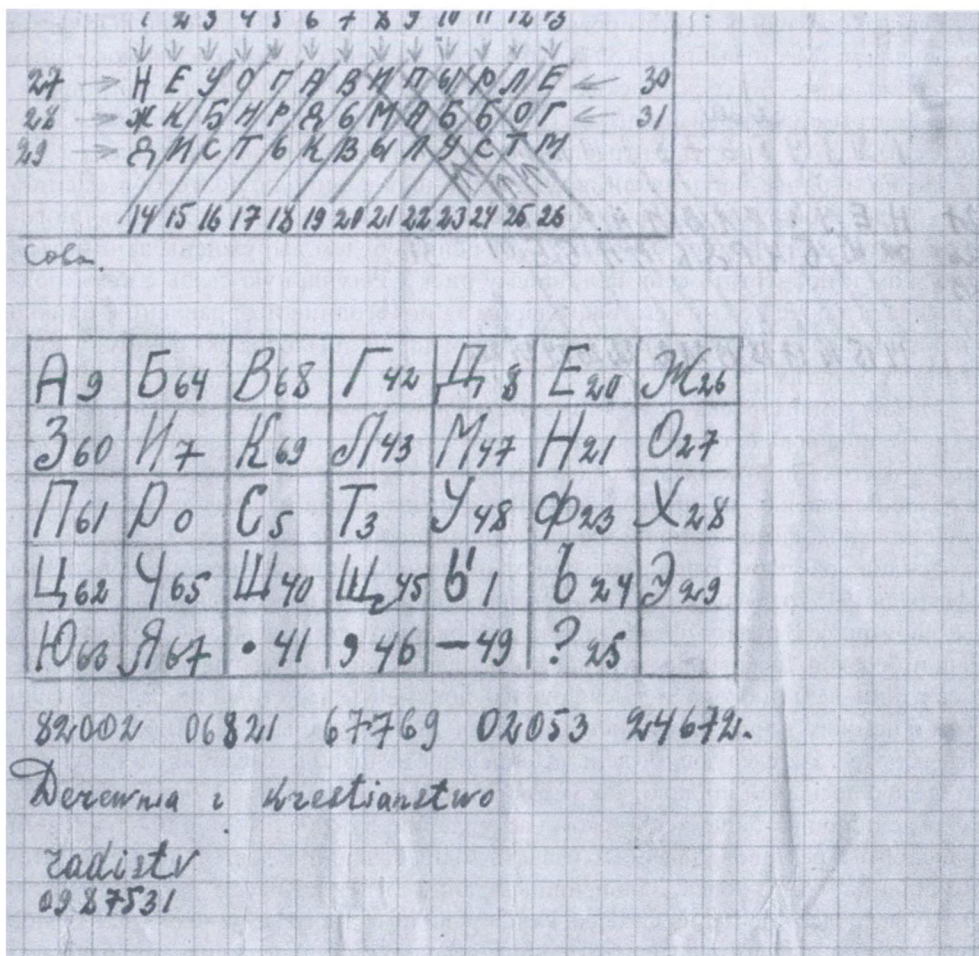 1 2 3 4 5 6 7 8 9 10 11 12 13
27 → Н Е У О Г А В И П Ы Р Л Е ← 30
28 → Ж К Б Н Р Д Ь М А Б Б О Г ← 31
29 → Д И С Т Ь К В Ы Л У С Т М
14 15 16 17 18 19 20 21 22 23 24 25 26
А 9 Б 64 В 68 Г 42 Д 8 Е 20 Ж 26
З 60 И 7 К 69 Л 43 М 47 Н 21 О 27
П 61 Р 0 С 5 Т 3 У 48 Ф 23 Х 28
Ц 62 Ч 65 Ш 40 Щ 45 Ы 1 Ь 24 Э 29
Ю 63 Я 67 • 41 , 46 — 49 ? 25
82002 06821 67769 02053 24672.
Derewnia i krestianstwo
radistv
0987531